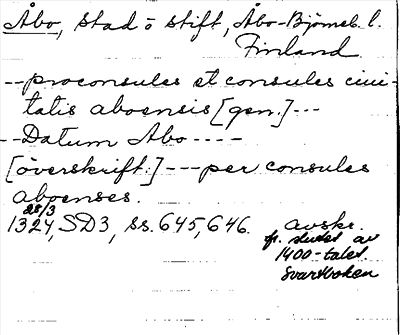 Åbo, stad o stift, Åbo-Björneb. l.
Finland.
--proconsules et consules civi-
tatis aboensis [gen.]---
--Datum Abo----
[överskrift:]---per consules
aboenses.
28/3
1324, SD3, ss. 645, 646. avskr.
fr. slutet av
1400-talet.
Svartboken